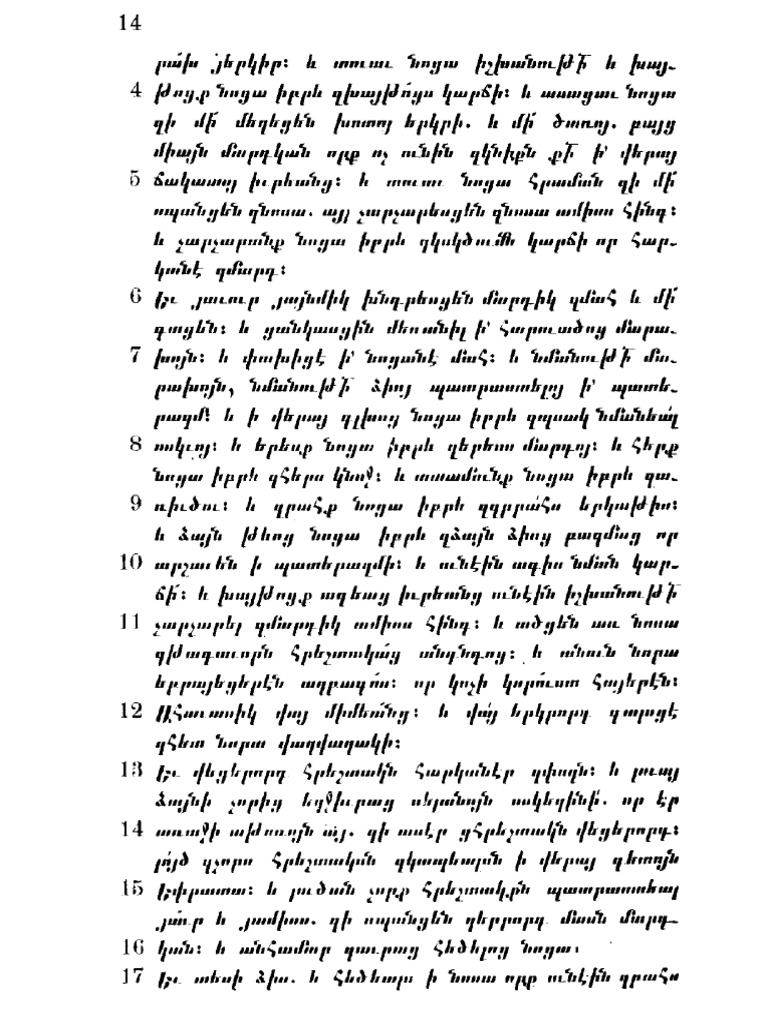 14
րախ յերկիր։ և տուաւ նոցա իշխանութի՟ և խայ֊
4 թոցք նոցա իբրև զխայթոյս կարճի։ և ասացաւ նոցա
զի մի՛ մեղեցեն խոտոյ երկրի. և մի՛ ծառոյ. բայց
միայն մարդկան որք ոչ ունին զկնիքն քի՟ ի՛ վերայ
5 ճակատոյ իւրեանց։ և տուաւ նոցա հրաման զի մի՛
սպանցեն զնոսա. այլ չարչարեսցեն զնոսա ամիսս հինգ։
և չարչարանք նոցա իբրև զկսկծումն կարճի որ հար֊
կանէ զմարդ։
6 Եւ յաւուր յայնմիկ խնդրեսցեն մարդիկ զմահ և մի՛
գտցեն։ և ցանկասցին մեռանիլ ի՛ հարուածոց մարա֊
7 խոյն։ և փախիցէ ի՛ նոցանէ մահ։ և նմանութի՟ մա֊
րախոյն, նմանութի՟ ձիոյ պատրաստելոյ ի՛ պատե֊
րազմ։ և ի վերայ գլխոց նոցա իբրև զպսակ նմանեալ
8 ոսկւոյ։ և երեսք նոցա իբրև զերեսս մարդոյ։ և հերք
նոցա իբրև զհերս կնոջ։ և ատամունք նոցա իբրև զա֊
9 ռիւծու։ և զրահք նոցա իբրև զզրրահս երկաթիս։
և ձայն թևոց նոցա իբրև զձայն ձիոց բազմաց որ
10 արշաւեն ի պատերազմի։ և ունէին ագիս նման կար֊
ճի՛։ և խայթոցք ագեաց իւրեանց ունէին իշխանութի՟
11 չարչարել զմարդիկ ամիսս հինգ։ և ածցեն առ նոսա
զթագաւորն հրեշտակաց անդնդոց։ և անուն նորա
եբրայեցերէն ազբագոս։ որ կոչի կորուստ հայերէն։
12 Ահաւասիկ վայ միմեանց։ և վայ երկրորդ գայցէ
զհետ նորա վաղվաղակի։
13 Եւ վեցերորդ հրեշտակն հարկանէր զփողն։ և լուայ
ձայնի չորից եղջիւրաց սեղանոյն ոսկեղինի. որ էր
14 առաջի աթոռոյն այ. զի ասէր ցհրեշտակն վեցերորդ։
լոյծ զչորս հրեշտակսն զկապեալսն ի վերայ գետոյն
15 Եփրատա։ և լուծան չորք հրեշտակքն պատրաստեալ
յաւր և յամիս. զի սպանցեն զերրորդ մասն մարդ֊
16 կան։ և անհամար զաւրաց հեծելոց նոցա։
17 Եւ տեսի ձիս. և հեծեալս ի նոսա որք ունէին զրահս